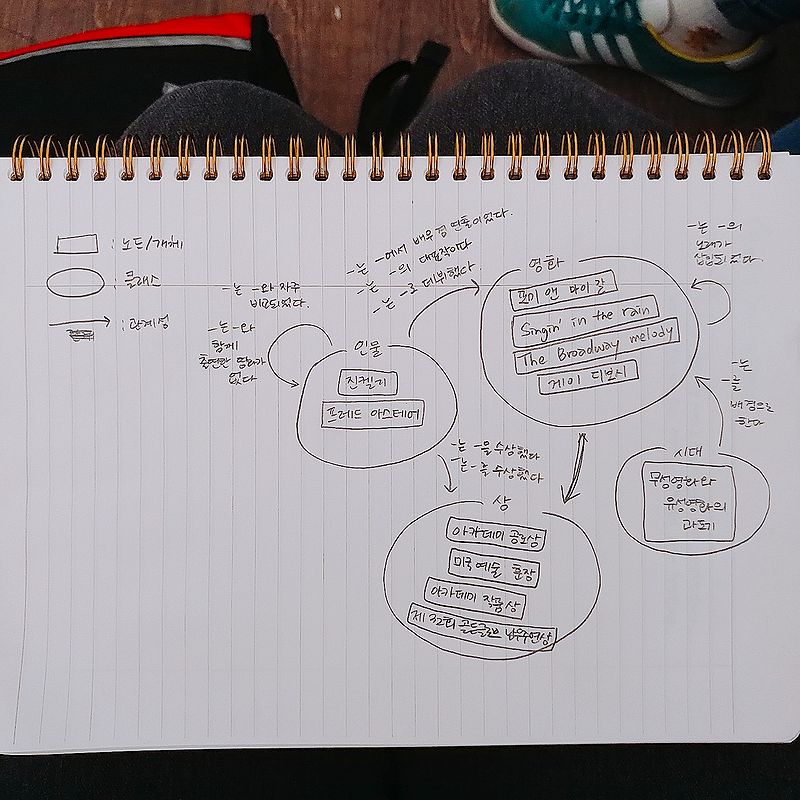 : 노드/개체
: 클래스
: 관계성
-는 -와 자주
비교되었다.
-는 -와
함께
출연한 영화가
없다
-는 -에서 배우 겸 연출이었다.
-는 -의 대표작이다
-는 -로 데뷔했다.
인물
진켈리
프레드 아스테어
영화
포미 앤 마이 갈
Singin' in the rain
The Broadway melody
게이 디보시
-는 -의
노래가
삽입되었다.
-는
-를
배경으로
한다
시대
무성영화와
유성영화의
과도기
-는 -을 수상했다
-는 -를 수상했다
상
아카데미 공로상
미국예술 훈장
아카데미 작품상
제 32회 골든글로브 남우주연상